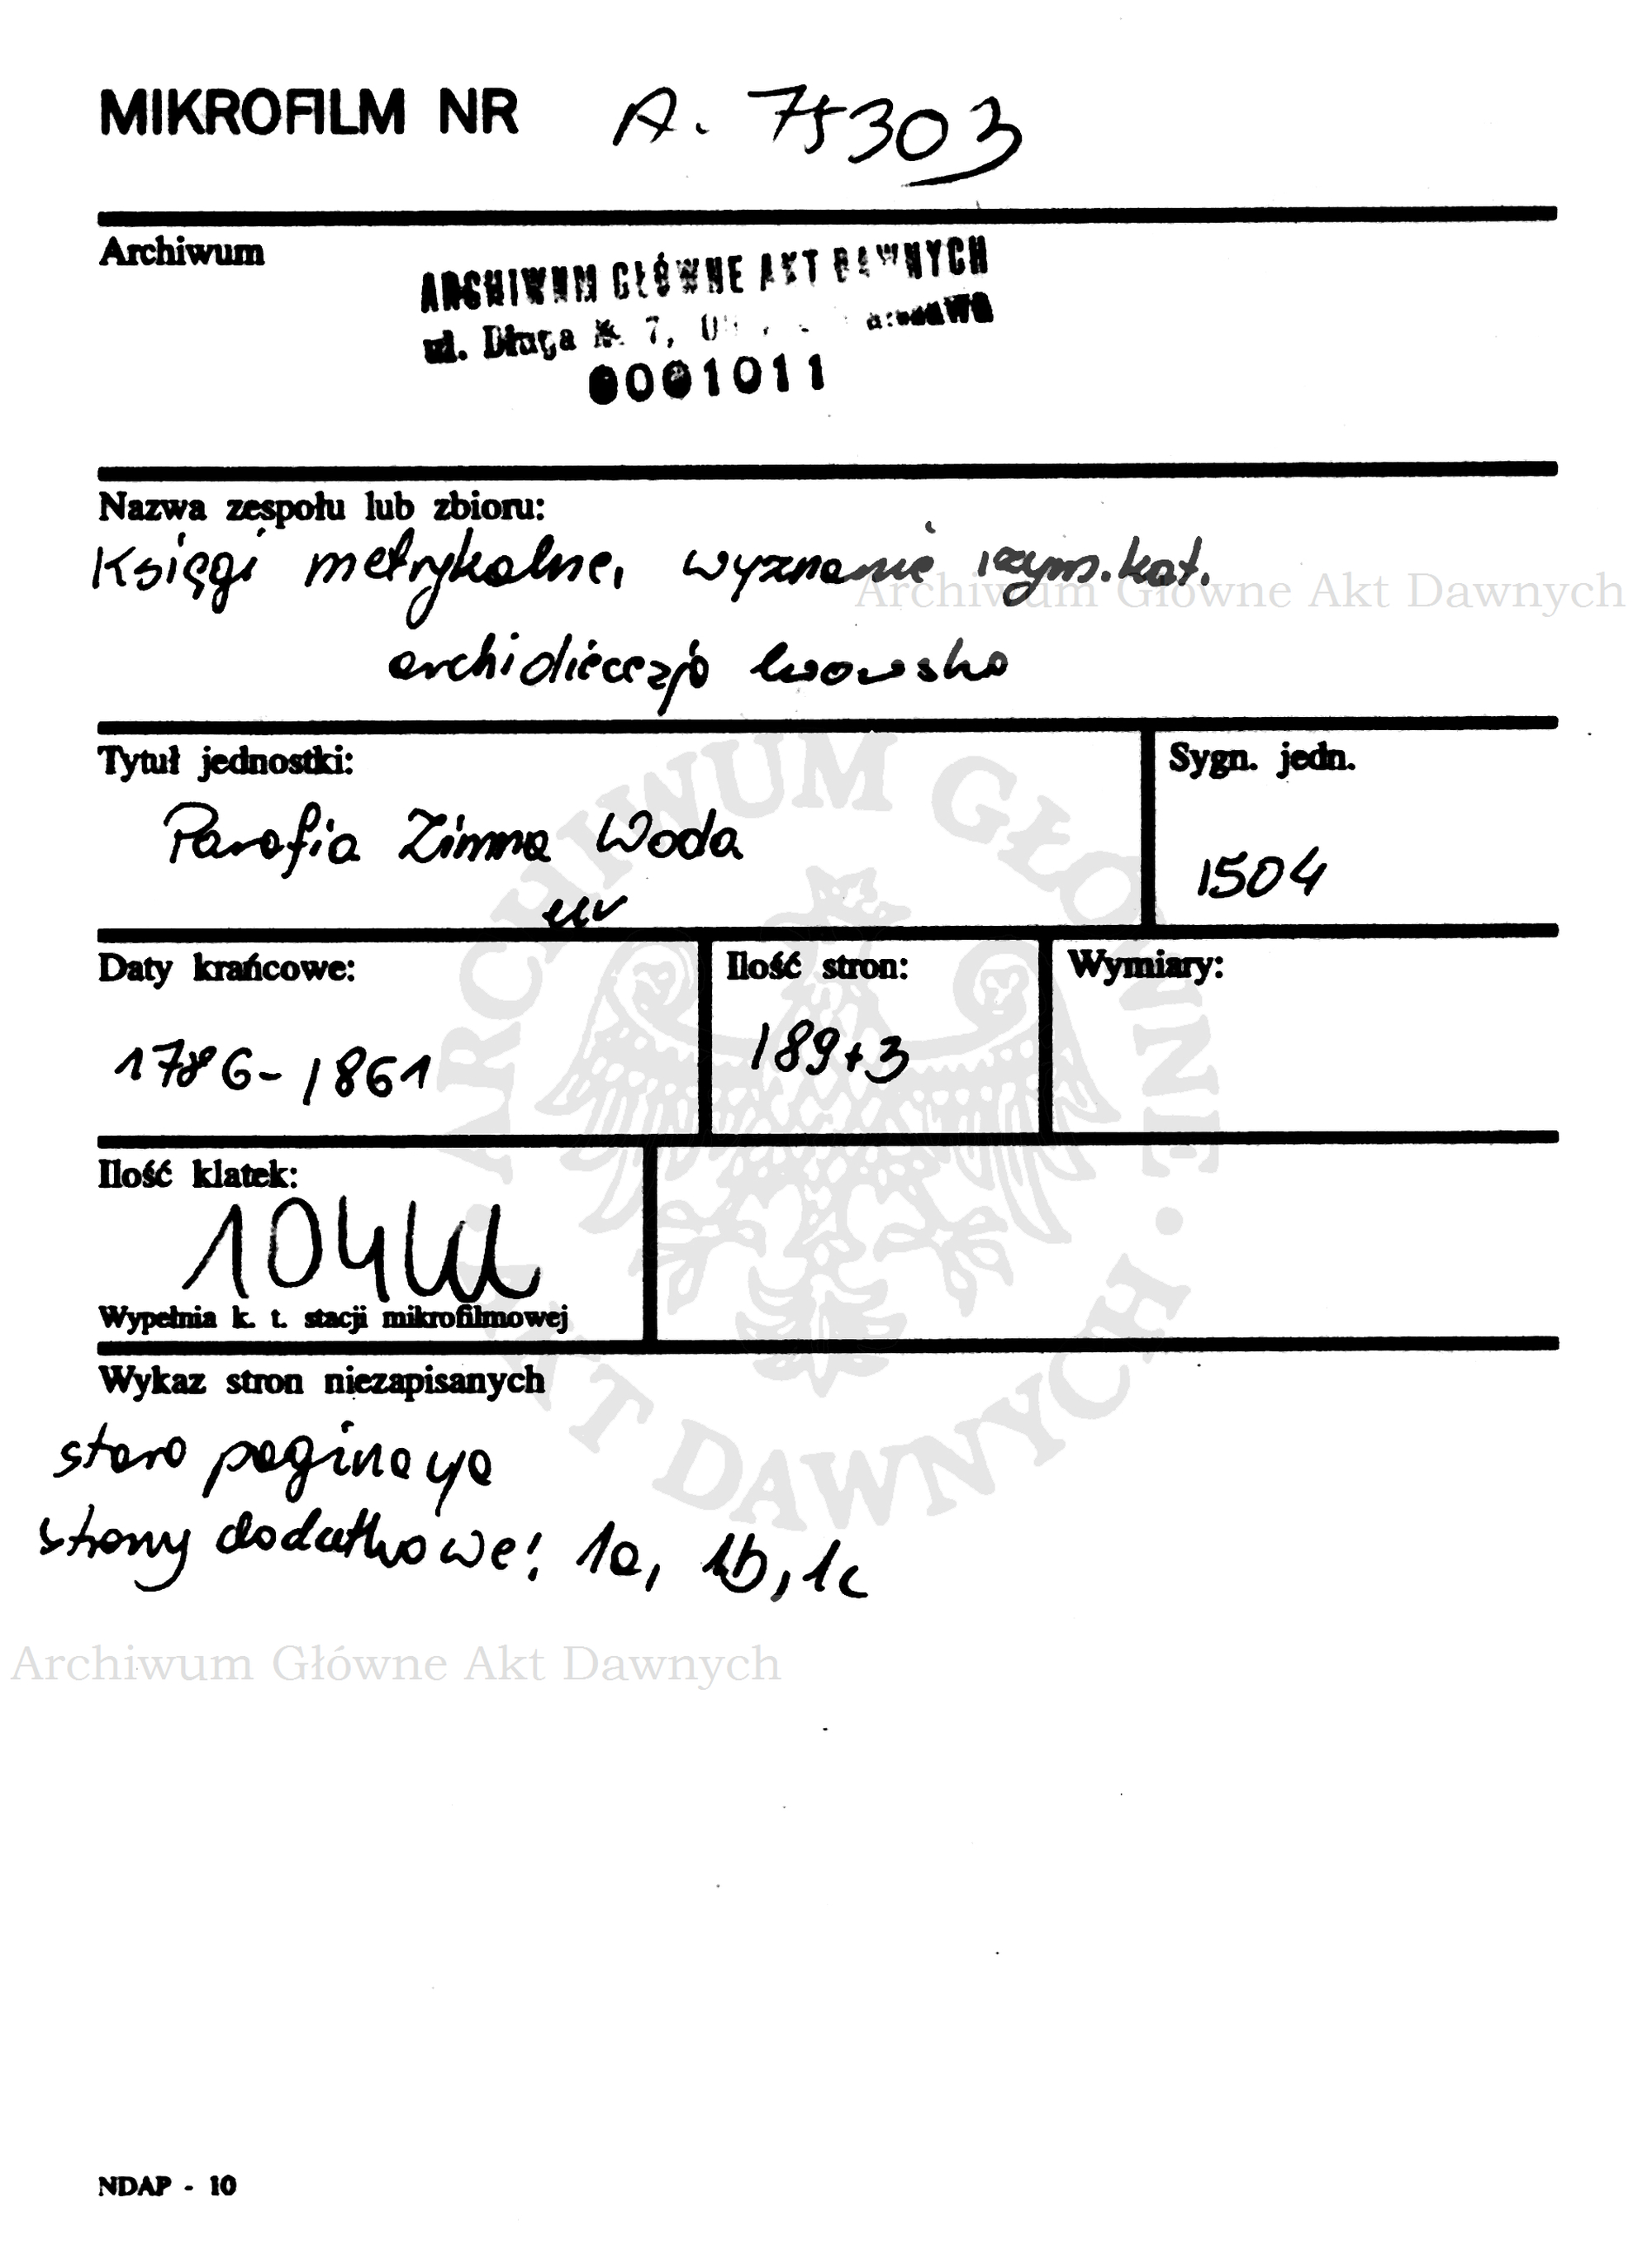 MIKROFILM NR A. 75303
Archiwum
ARCHIWUM GŁÓWNE AKT DAWNYCH
ul. Długa 7,
0001011
Nazwa zespołu lub zbioru:
Księgi metrykalne, wyznanie rzym.kat.
Archiwum Główne Akt Dawnych
archidiecezja lwowska
Tytuł jednostki:
Sygn. jedn.
Parafia Zimna Woda
1504
Daty krańcowe:
Ilość stron:
Wymiary:
1786-1861
189+3
Ilość klatek:
104
Wypełnia k. t. stacji mikrofilmowej
Wykaz stron niezapisanych
stara paginacja
strony dodatkowe: 1a, 1b, 1c
Archiwum Główne Akt Dawnych
NDAP - 10
ARCHIWUM GŁÓWNE AKT DAWNYCH